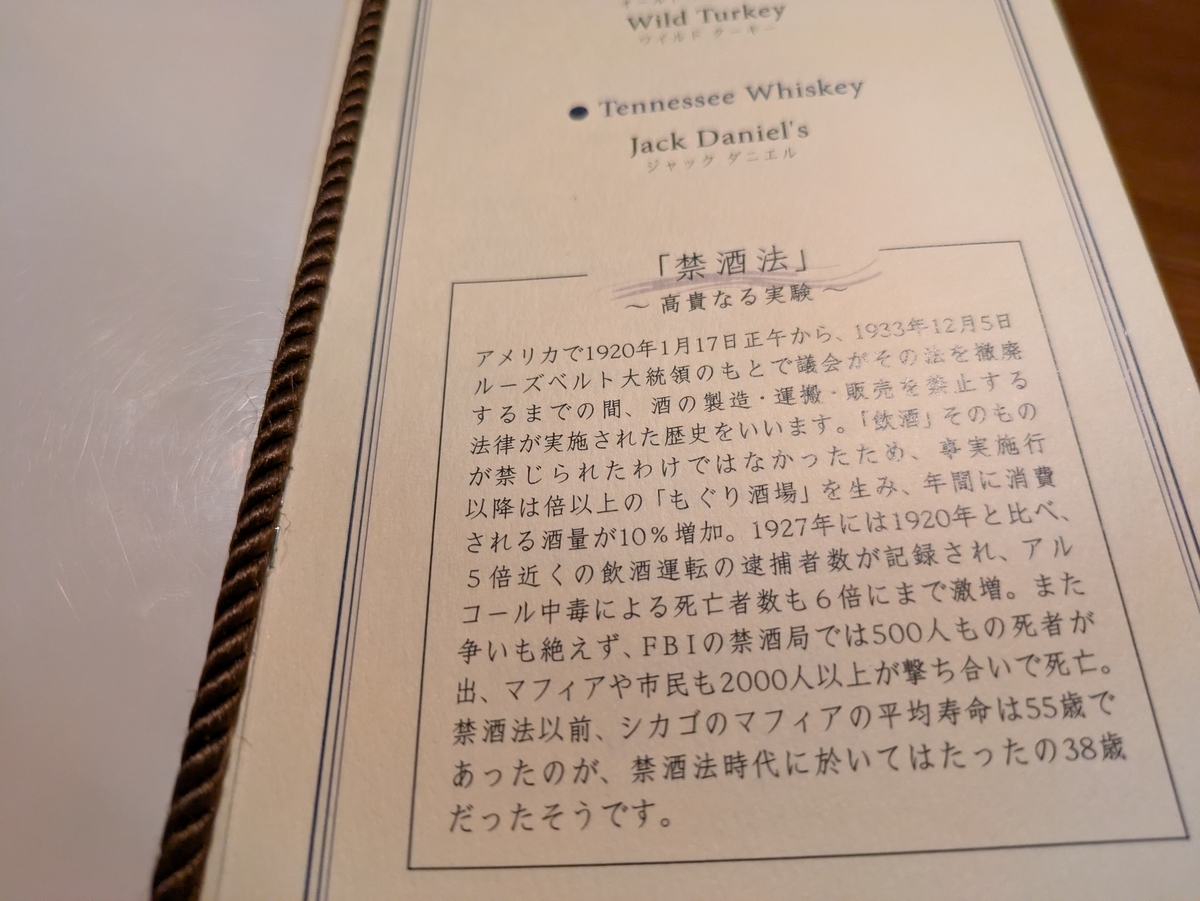 Wild Turkey
ワイルド ターキー
● Tennessee Whiskey
Jack Daniel's
ジャック ダニエル
「禁酒法」
～ 高貴なる実験 ～
アメリカで1920年1月17日正午から、1933年12月5日
ルーズベルト大統領のもとで議会がその法を撤廃
するまでの間、酒の製造・運搬・販売を禁止する
法律が実施された歴史をいいます。「飲酒」そのもの
が禁じられたわけではなかったため、事実施行
以降は倍以上の「もぐり酒場」を生み、年間に消費
される酒量が10％増加。1927年には1920年と比べ、
５倍近くの飲酒運転の逮捕者数が記録され、アル
コール中毒による死亡者数も６倍にまで激増。また
争いも絶えず、FBIの禁酒局では500人もの死者が
出、マフィアや市民も2000人以上が撃ち合いで死亡。
禁酒法以前、シカゴのマフィアの平均寿命は55歳で
あったのが、禁酒法時代に於いてはたったの38歳
だったそうです。